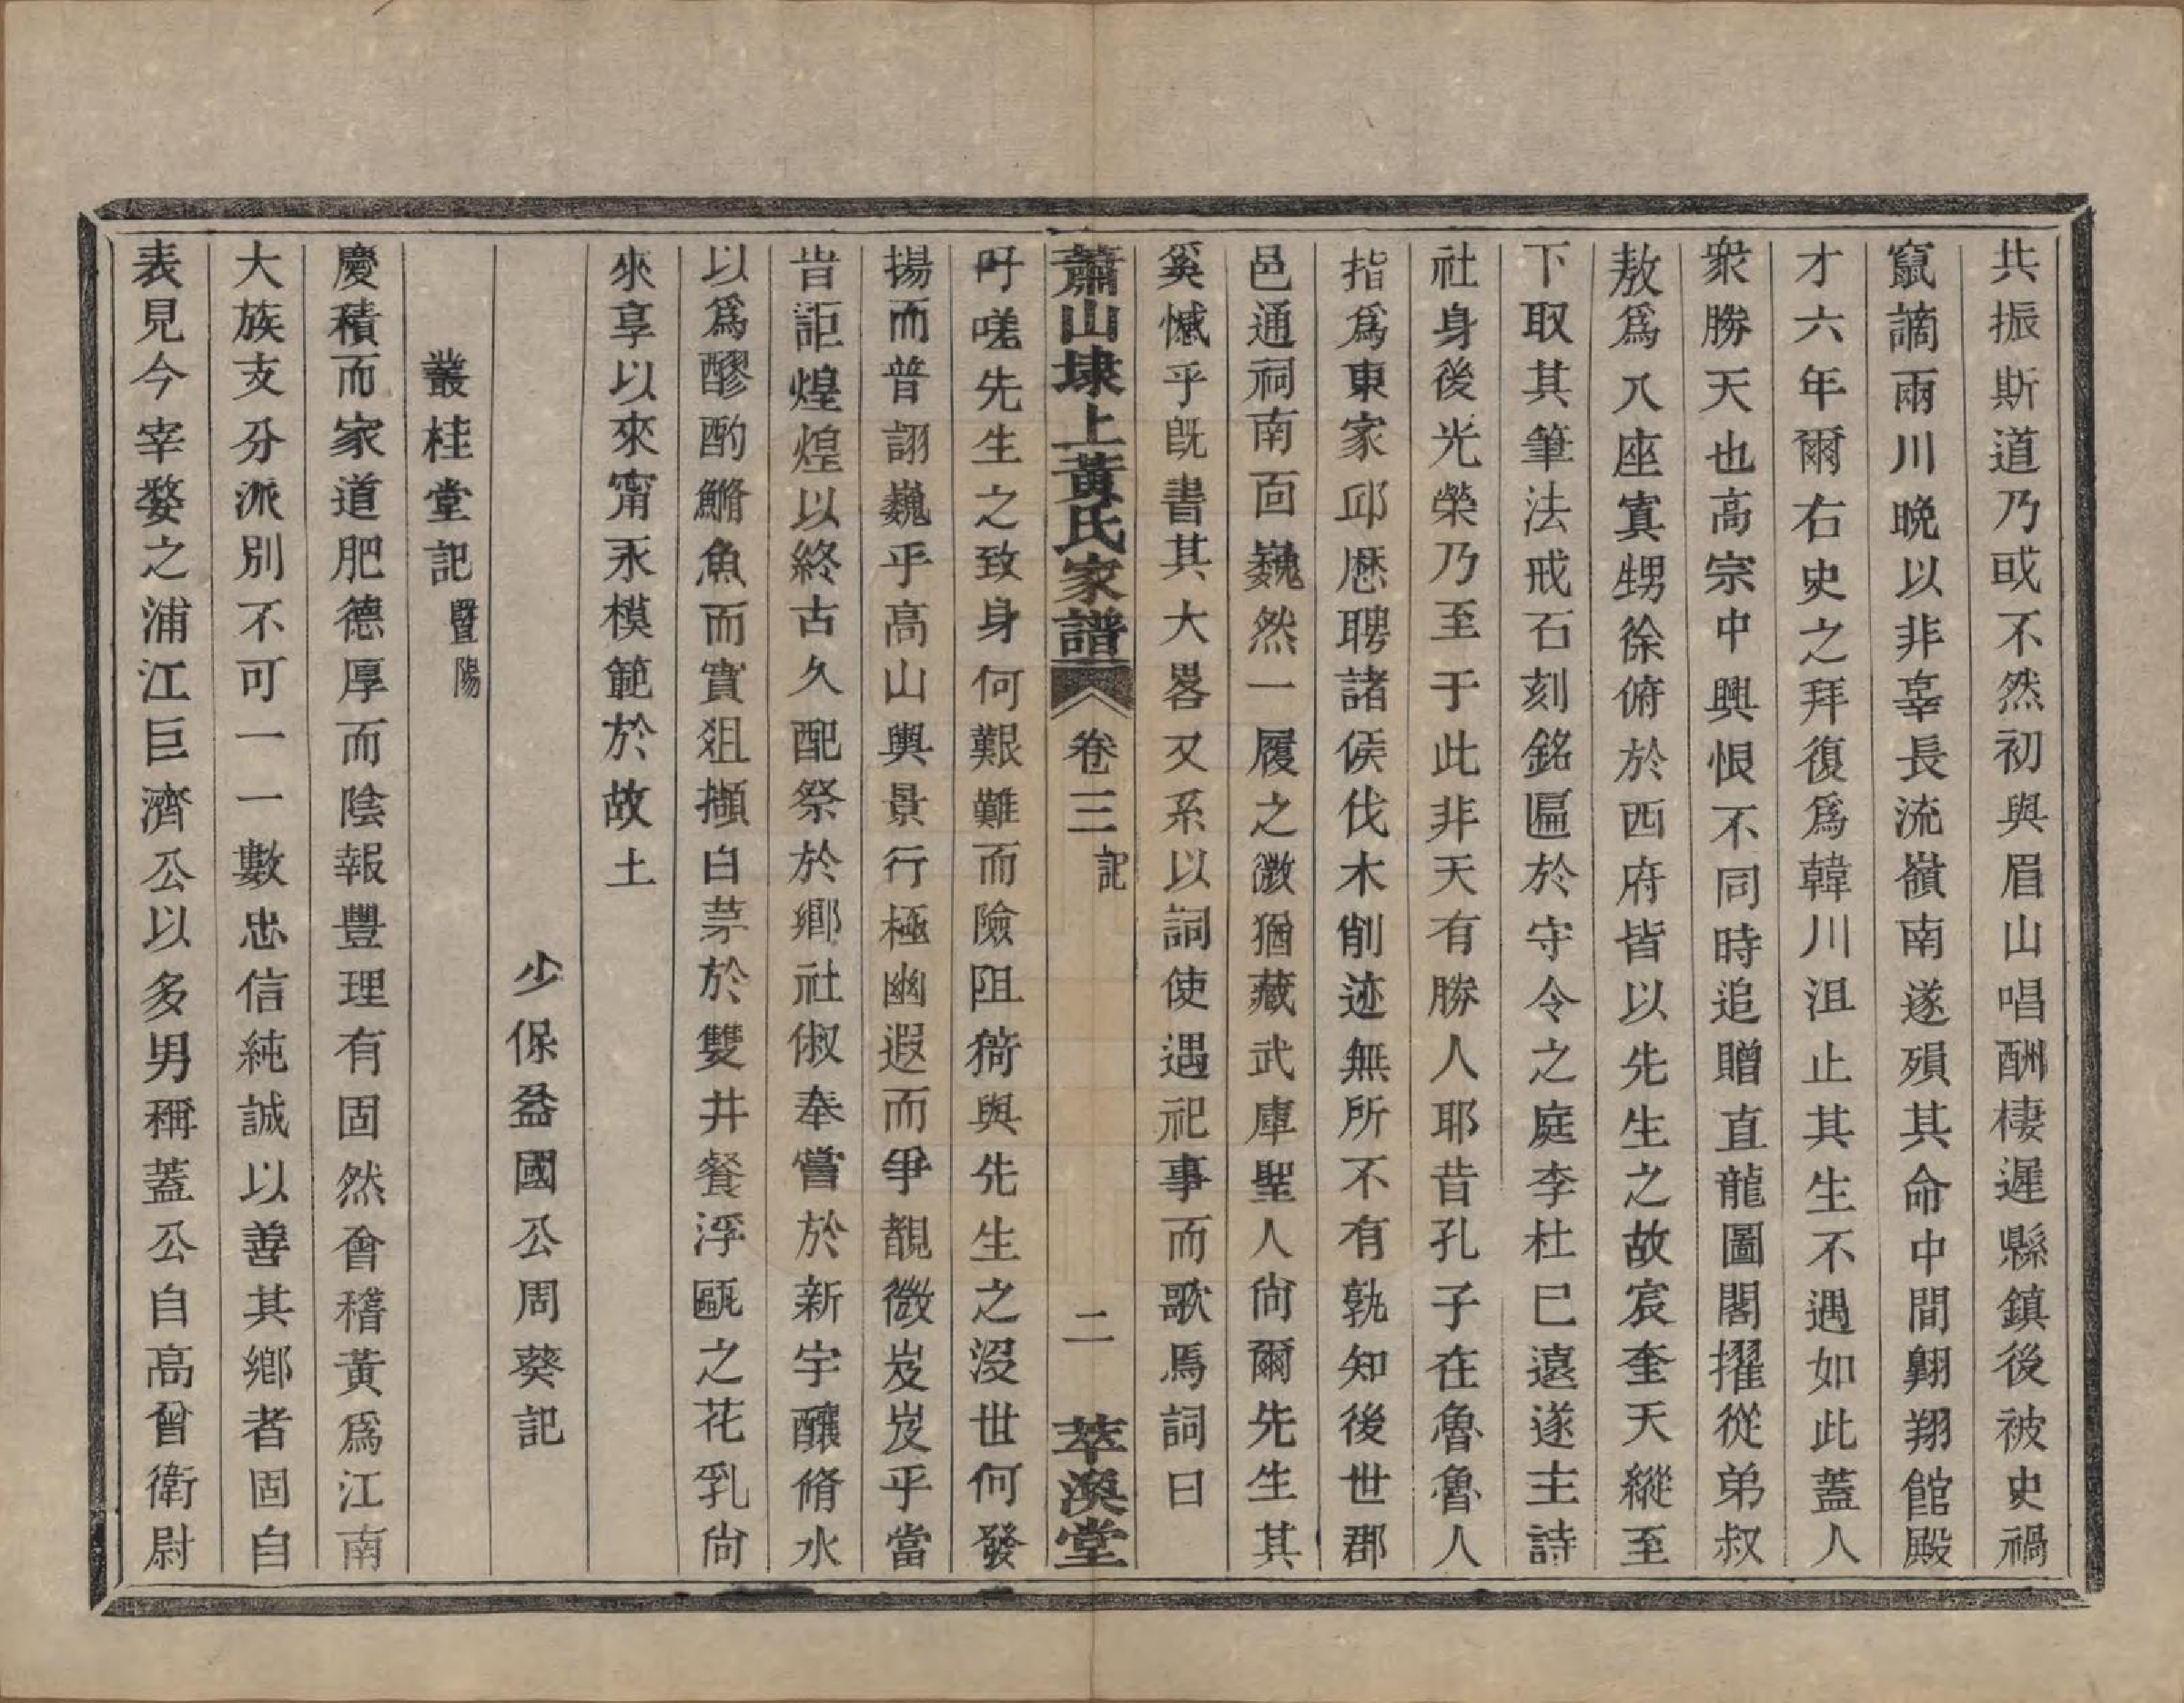 共振斯道乃或不然初與眉山唱酬棲遲縣鎮後被史禍
竄謫兩川晩以非辜長流嶺南遂殞其命中間翺翔館殿
才六年爾右史之拜復爲韓川沮止其生不遇如此蓋人
衆勝天也高宗中興恨不同時追贈直龍圖閣擢從弟叔
敖爲八座寘甥徐俯於西府皆以先生之故宸奎天縱至
下取其筆法戒石刻銘匾於守令之庭李杜已遠遂主詩
社身後光榮乃至于此非天有勝人耶昔孔子在魯魯人
指爲東家邱歴聘諸侯伐木削迹無所不有孰知後世郡
邑通祠南面巍然一履之微猶藏武庫聖人尙爾先生其
奚憾乎旣書其大畧又系以詞使遇祀事而歌焉詞曰
蕭山埭上黃氏家譜 卷三 記 二 萃渙堂
吁嗟先生之致身何艱難而險阻猗與先生之沒世何發
揚而普詡巍乎高山與景行極幽遐而爭覩微岌岌乎當
旹詎煌煌以終古久配祭於鄉社俶奉嘗於新宇釀脩水
以爲醪酌鱂魚而實俎擷白茅於雙井餐浮甌之花乳尙
來享以來甯永模範於故土
少保益國公周葵記
叢桂堂記 暨陽
慶積而家道肥德厚而陰報豐理有固然會稽黃爲江南
大族支分派別不可一一數忠信純誠以善其鄉者固自
表見今宰婺之浦江巨濟公以多男稱蓋公自高曾衛尉